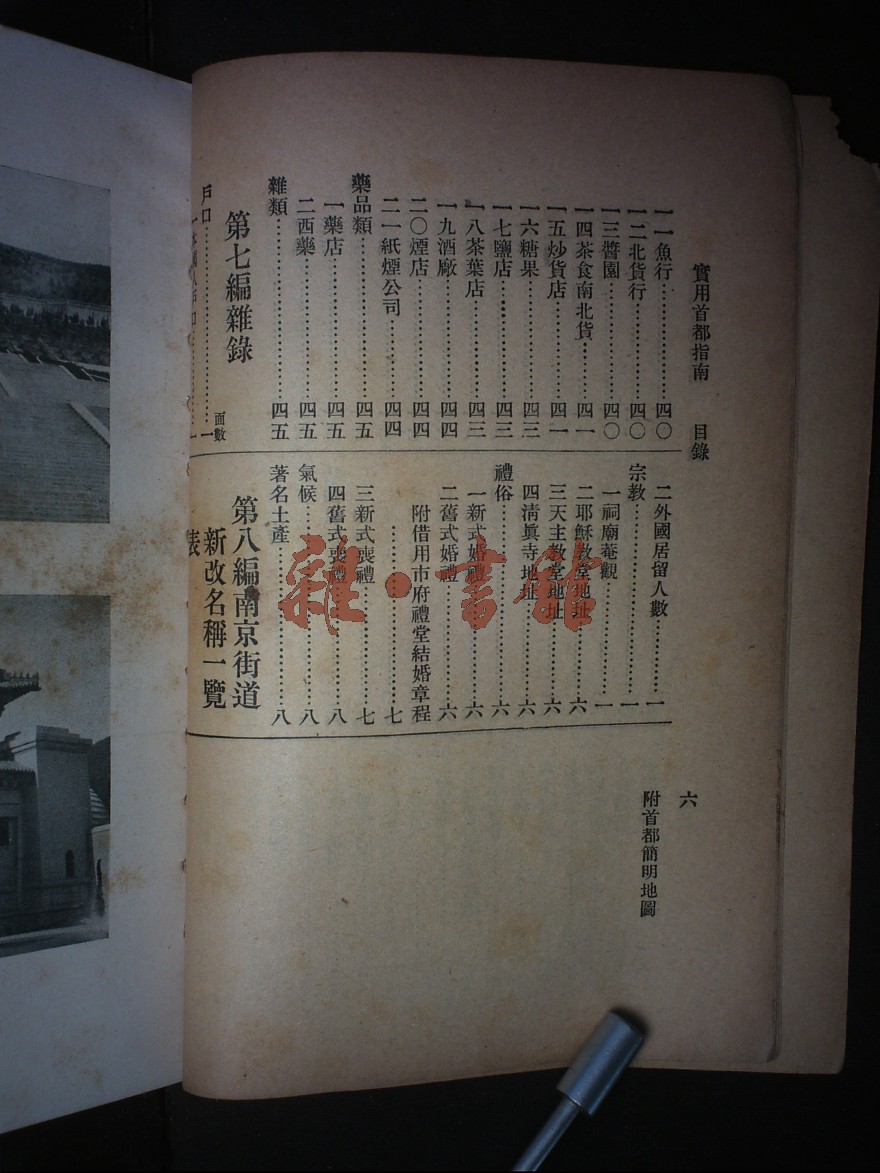 實用首都指南 目錄 六
一一魚行……四〇
一二北貨行……四〇
一三醬園……四〇
一四茶食南北貨……四一
一五炒貨店……四一
一六糖果……四三
一七鹽店……四三
一八茶葉店……四三
一九酒廠……四四
二〇煙店……四四
二一紙煙公司……四四
藥品類……四五
一藥店……四五
二西藥……四五
雜類……四五
第七編雜錄
面數
戶口……一
二外國居留人數……一
宗教……一
一祠廟菴觀……一
二耶穌教堂地址……六
三天主教堂地址……六
四清眞寺地址……六
禮俗……六
一新式婚禮……六
二舊式婚禮……六
附借用市府禮堂結婚章程
……七
三新式喪禮……七
四舊式喪禮……八
氣候……八
著名土產……八
第八編南京街道
新改名稱一覽
表
附首都簡明地圖
雜·書館